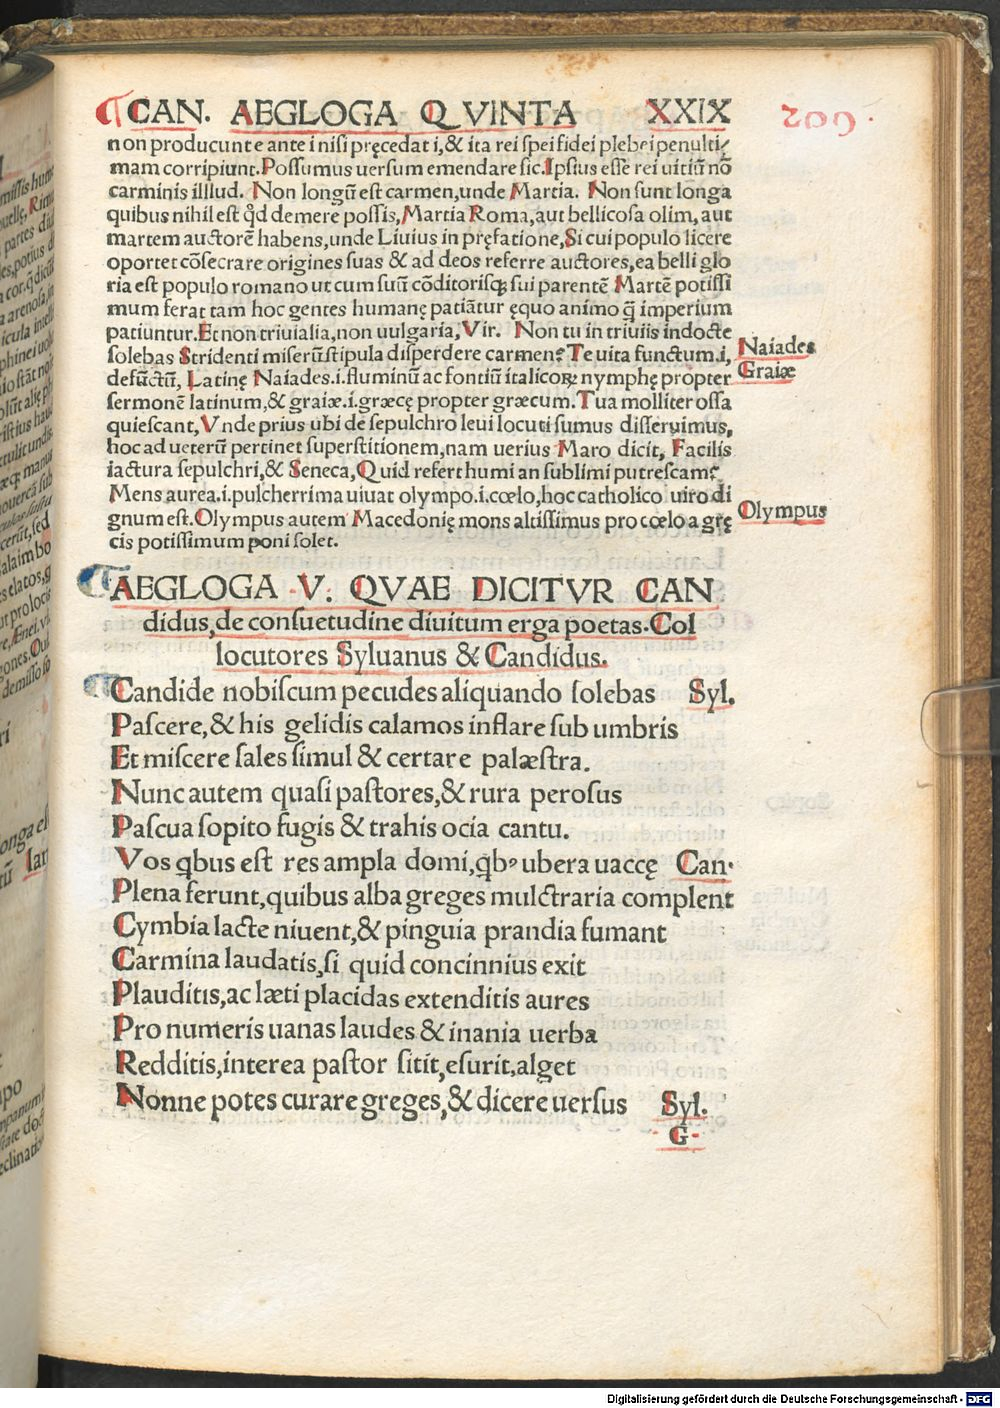 CAN. AEGLOGA QVINTA XXIX
209.
non producunt e ante i nisi pręcedat i, & ita rei spei fidei plebei penulti
mam corripiunt. Possumus uersum emendare sic. Ipsius esse rei uitiū nō
carminis illud. Non longū est carmen, unde Martia. Non sunt longa
quibus nihil est qd demere possis, Martia Roma, aut bellicosa olim, aut
martem auctorē habens, unde Liuius in pręfatione, Si cui populo licere
oportet cōsecrare origines suas & ad deos referre auctores, ea belli glo
ria est populo romano ut cum suū cōditorisq; sui parentē Martē potissi
mum ferat tam hoc gentes humanę patiātur ęquo animo q̄ imperium
patiuntur. Et non triuialia, non uulgaria, Vir. Non tu in triuiis indocte
solebas Stridenti miserū stipula disperdere carmen? Te uita functum .i,
defūctū, Latinę Naiades .i. fluminū ac fontiū italicoꝝ nymphę propter
sermonē latinum, & graiæ .i. græcę propter græcum. Tua molliter ossa
quiescant, Vnde prius ubi de sepulchro leui locuti sumus disseruimus,
hoc ad ueterū pertinet superstitionem, nam uerius Maro dicit, Facilis
iactura sepulchri, & Seneca, Quid refert humi an sublimi putrescam?
Mens aurea .i. pulcherrima uiuat olympo .i. cœlo, hoc catholico uiro di
gnum est. Olympus autem Macedonię mons altissimus pro cœlo a grę
cis potissimum poni solet.
Naiades
Graiæ
Olympus
AEGLOGA V. QVAE DICITVR CAN
didus, de consuetudine diuitum erga poetas. Col
locutores Syluanus & Candidus.
Candide nobiscum pecudes aliquando solebas Syl.
Pascere, & his gelidis calamos inflare sub umbris
Et miscere sales simul & certare palæstra.
Nunc autem quasi pastores, & rura perosus
Pascua sopito fugis & trahis ocia cantu.
Vos qbus est res ampla domi, qbꝰ ubera uaccę Can.
Plena ferunt, quibus alba greges mulctraria complent
Cymbia lacte niuent, & pinguia prandia fumant
Carmina laudatis, si quid concinnius exit
Plauditis, ac læti placidas extenditis aures
Pro numeris uanas laudes & inania uerba
Redditis, interea pastor sitit, esurit, alget
Nonne potes curare greges, & dicere uersus Syl.
G
Digitalisierung gefördert durch die Deutsche Forschungsgemeinschaft - DFG